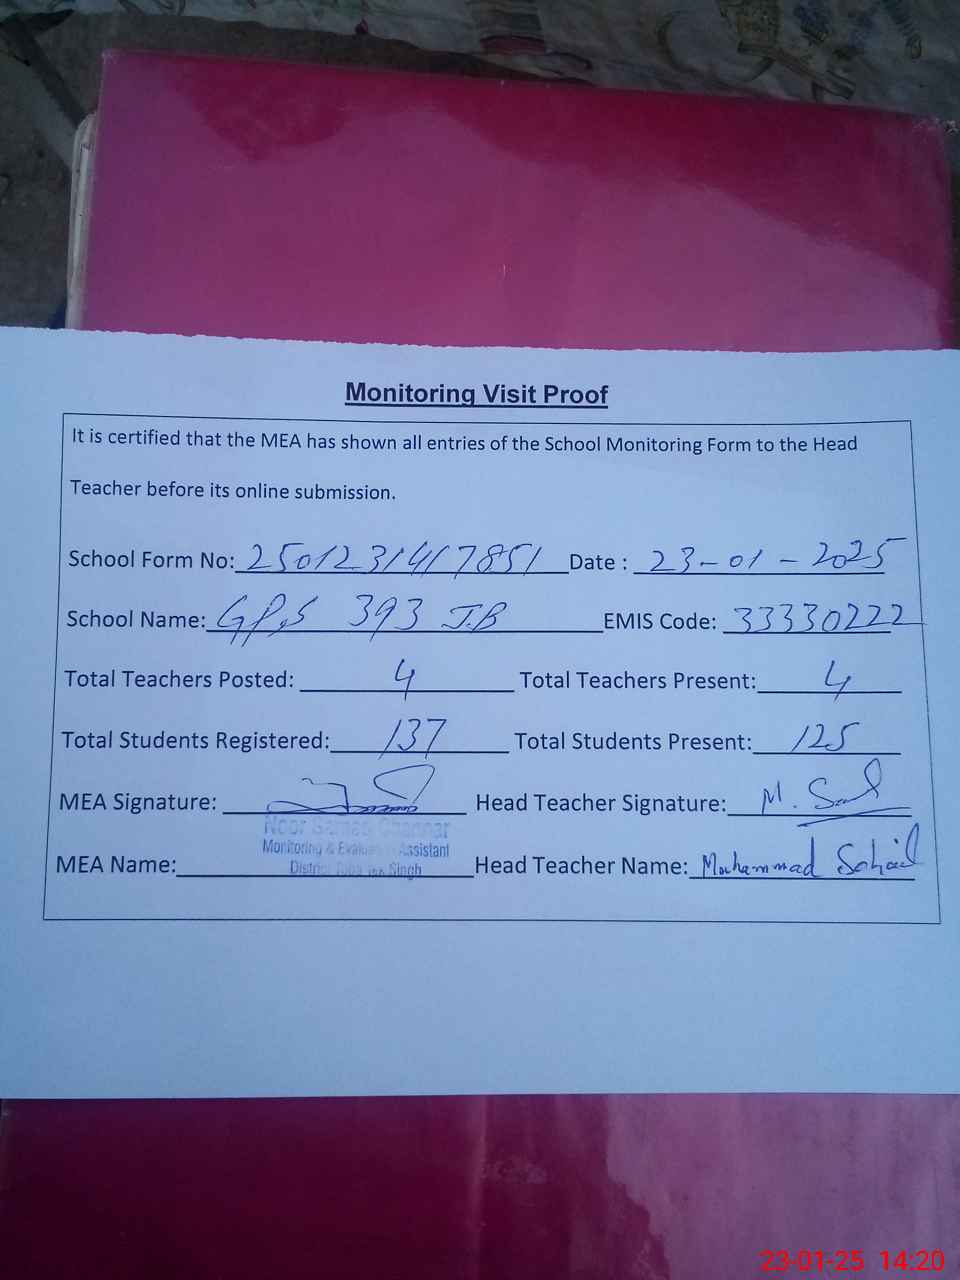 Monitoring Visit Proof
It is certified that the MEA has shown all entries of the School Monitoring Form to the Head
Teacher before its online submission.
School Form No: 2501231417851 Date : 23-01-2025
School Name: GPS 393 J.B EMIS Code: 33330222
Total Teachers Posted: 4 Total Teachers Present: 4
Total Students Registered: 137 Total Students Present: 125
MEA Signature: Head Teacher Signature: M.
Noor
Monitoring & Evaluation Assistant
MEA Name: District Toba Tek Singh Head Teacher Name: Muhammad Sohail
23-01-25 14:20